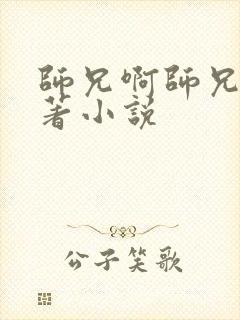 師兄啊師兄
著小説
公子笑歌